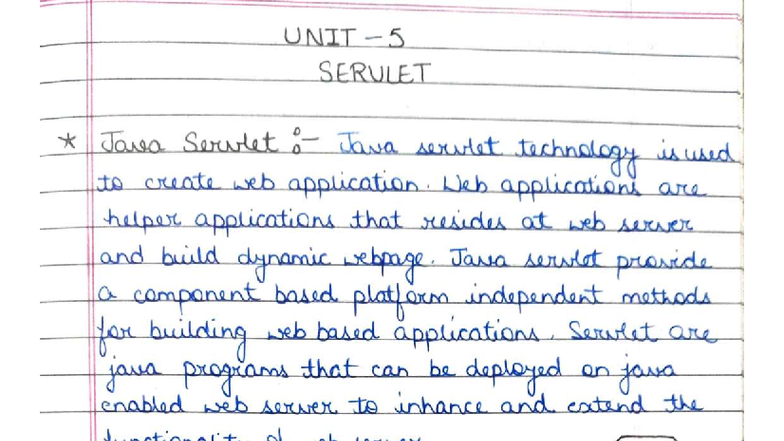 UNIT - 5
SERVLET
* Java Servlet :- Java servlet technology is used
to create web application. Web applications are
helper applications that resides at web server
and build dynamic webpage. Java servlet provide
a component based platform independent methods
for building web based applications. Servlet are
java programs that can be deployed on java
enabled web server to inhance and extend the
functionality of web server